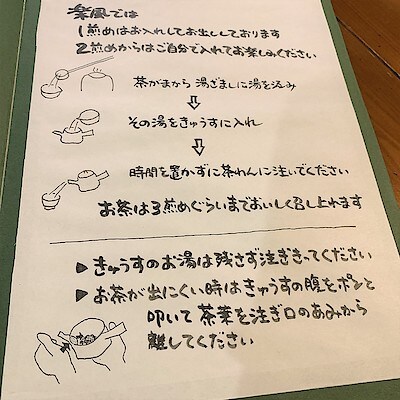 楽風では
1煎めはお入れしてお出ししております
2煎めからはご自分で入れてお楽しみください
茶がまから 湯ざましに湯を汲み
その湯をきゅうすに入れ
時間を置かずに茶わんに注いでください
お茶は3煎めぐらいまでおいしく召し上れます
▶きゅうすのお湯は残さず注ぎきってください
▶お茶が出にくい時はきゅうすの腹をポンと
叩いて茶葉を注ぎ口のあみから
離してください